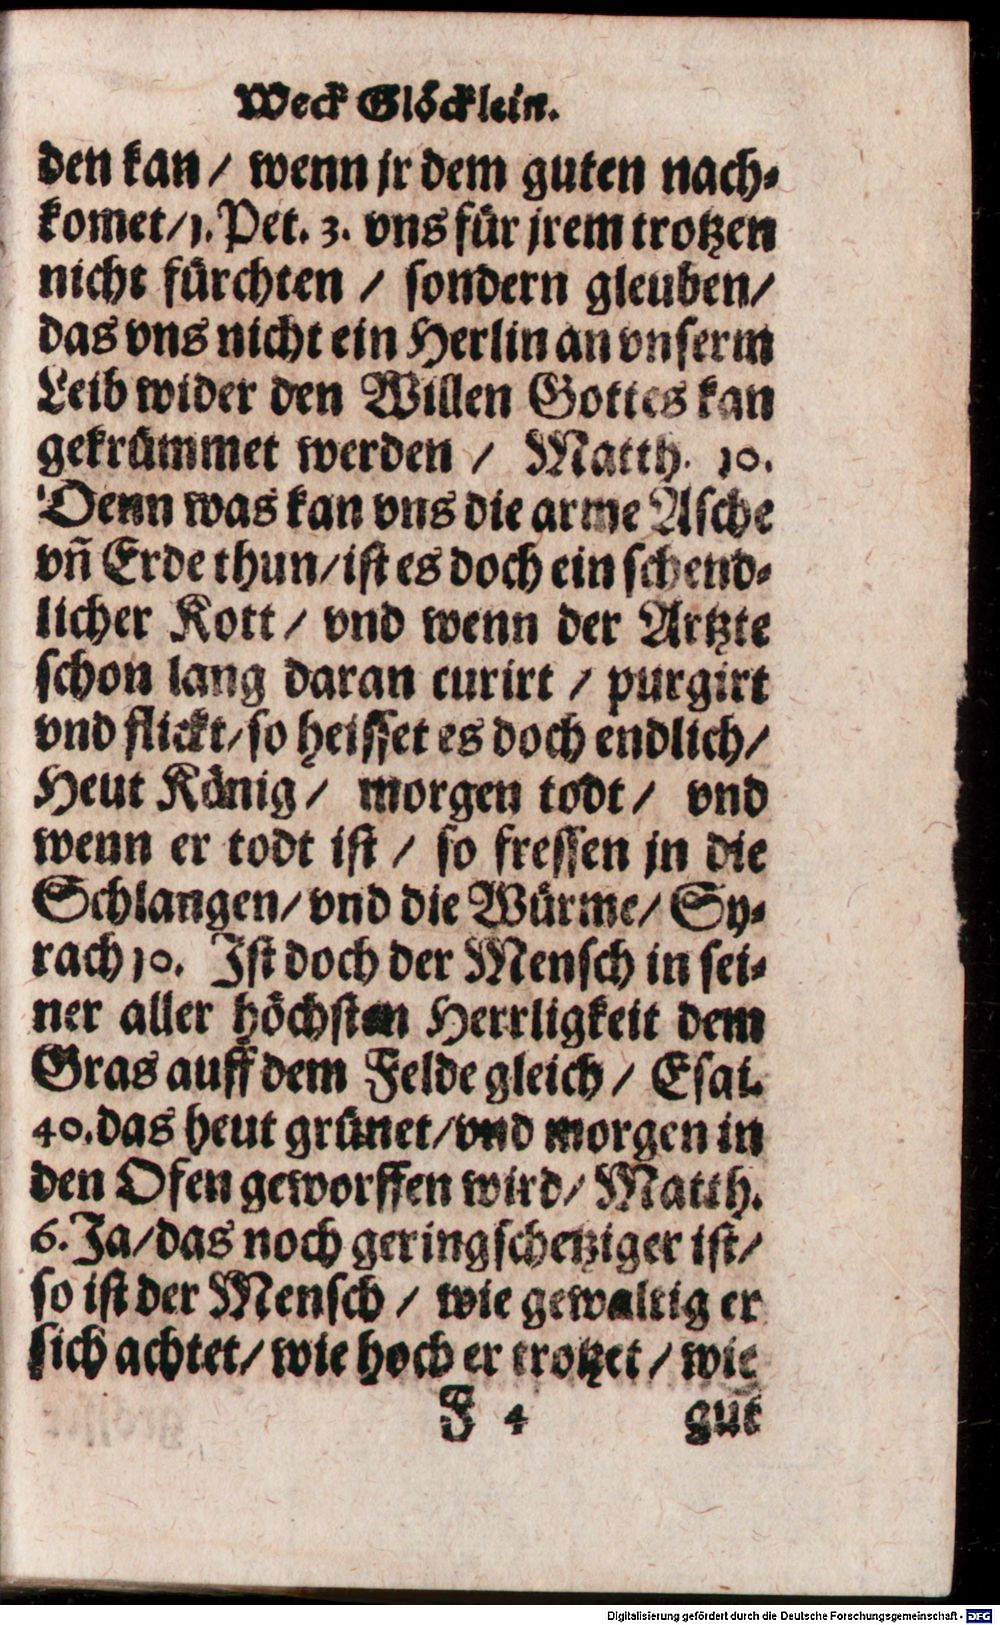 Weck Glöcklein.
den kan / wenn jr dem guten nach-
komet / 1. Pet. 3. vns für jrem trotzen
nicht fürchten / sondern gleuben /
das vns nicht ein Herlin an vnserm
Leib wider den Willen Gottes kan
gekrümmet werden / Matth. 10.
Denn was kan vns die arme Asche
vñ Erde thun / ist es doch ein schend-
licher Kott / vnd wenn der Artzte
schon lang daran curirt / purgirt
vnd flickt / so heisset es doch endlich /
Heut König / morgen todt / vnd
wenn er todt ist / so fressen jn die
Schlangen / vnd die Würme / Sy-
rach 10. Ist doch der Mensch in sei-
ner aller höchsten Herrligkeit dem
Gras auff dem Felde gleich / Esai.
40. das heut grünet / vnd morgen in
den Ofen geworffen wird / Matth.
6. Ja / das noch geringschetziger ist /
so ist der Mensch / wie gewaltig er
sich achtet / wie hoch er trotzet / wie
F 4 gut
Digitalisierung gefördert durch die Deutsche Forschungsgemeinschaft - DFG